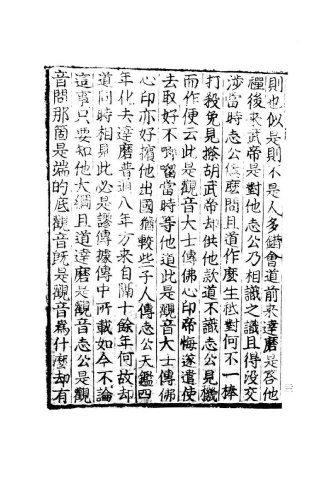 則也似是則不是人多錯會道前來達磨是答他
禪後來武帝是對他志公乃相識之識且得沒交
涉當時志公恁麼問且道作麼生秪對何不一棒
打殺免見搽胡武帝却供他款道不識志公見機
而作便云此是觀音大士傳佛心印帝悔遂遣使
去取好不唧𠺕當時等他道此是觀音大士傳佛
心印亦好擯他出國猶較些子人傳志公天鑑四
年化去達磨普通八年方來自隔十餘年何故却
道同時相見此必是謬傳據傳中所載如今不論
這事只要知他大綱且道達磨是觀音志公是觀
音問那箇是端的底觀音既是觀音爲什麽却有